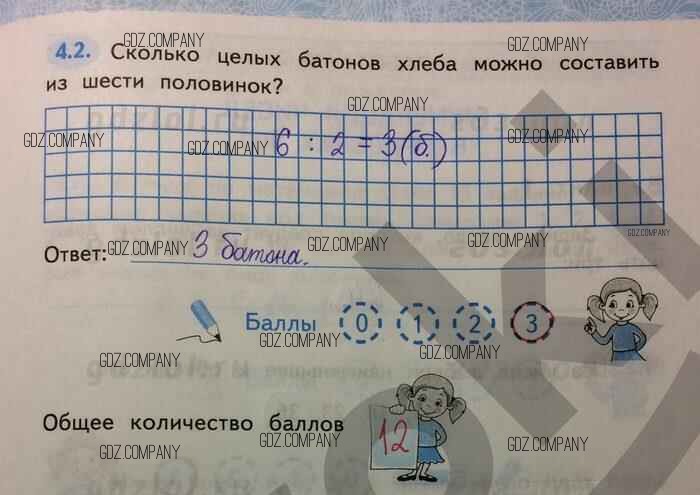 GDZ.COMPANY GDZ.COMPANY
4.2. Сколько целых батонов хлеба можно составить
из шести половинок?
GDZ.COMPANY
GDZ.COMPANY GDZ.COMPANY GDZ.COMPANY
6 : 2 = 3 (б.)
GDZ.COMPANY GDZ.COMPANY GDZ.COMPANY
Ответ: 3 батона.
GDZ.COMPANY
Баллы 0 1 2 3
GDZ.COMPANY GDZ.COMPANY GDZ.COMPANY
Общее количество баллов 12
GDZ.COMPANY GDZ.COMPANY GDZ.COMPANY